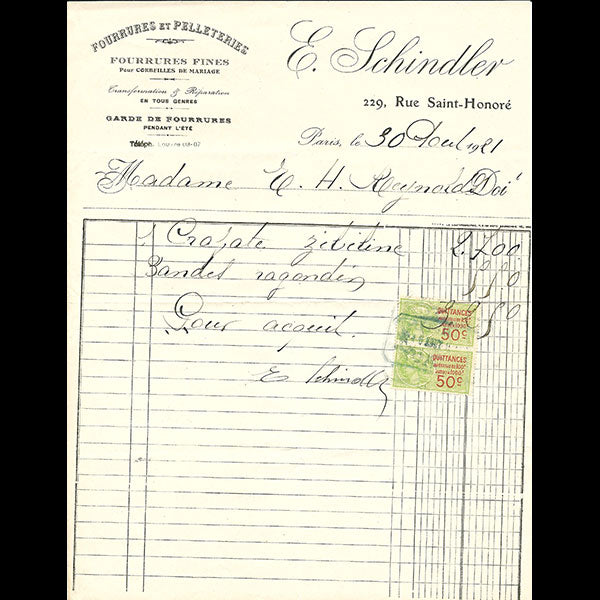 FOURRURES ET PELLETERIES
FOURRURES FINES
POUR CORBEILLES DE MARIAGE
Transformation & Réparation
EN TOUS GENRES
GARDE DE FOURRURES
PENDANT L'ÉTÉ
Téléph.
E. Schindler
229, Rue Saint-Honoré
Paris, le 30 Aout 1921
Madame E. H. Reynold Doit
1 Cravate zibeline 2.700
Bandes ragondin
Pour acquit.
E Schindler
QUITTANCES
50c
QUITTANCES
50c